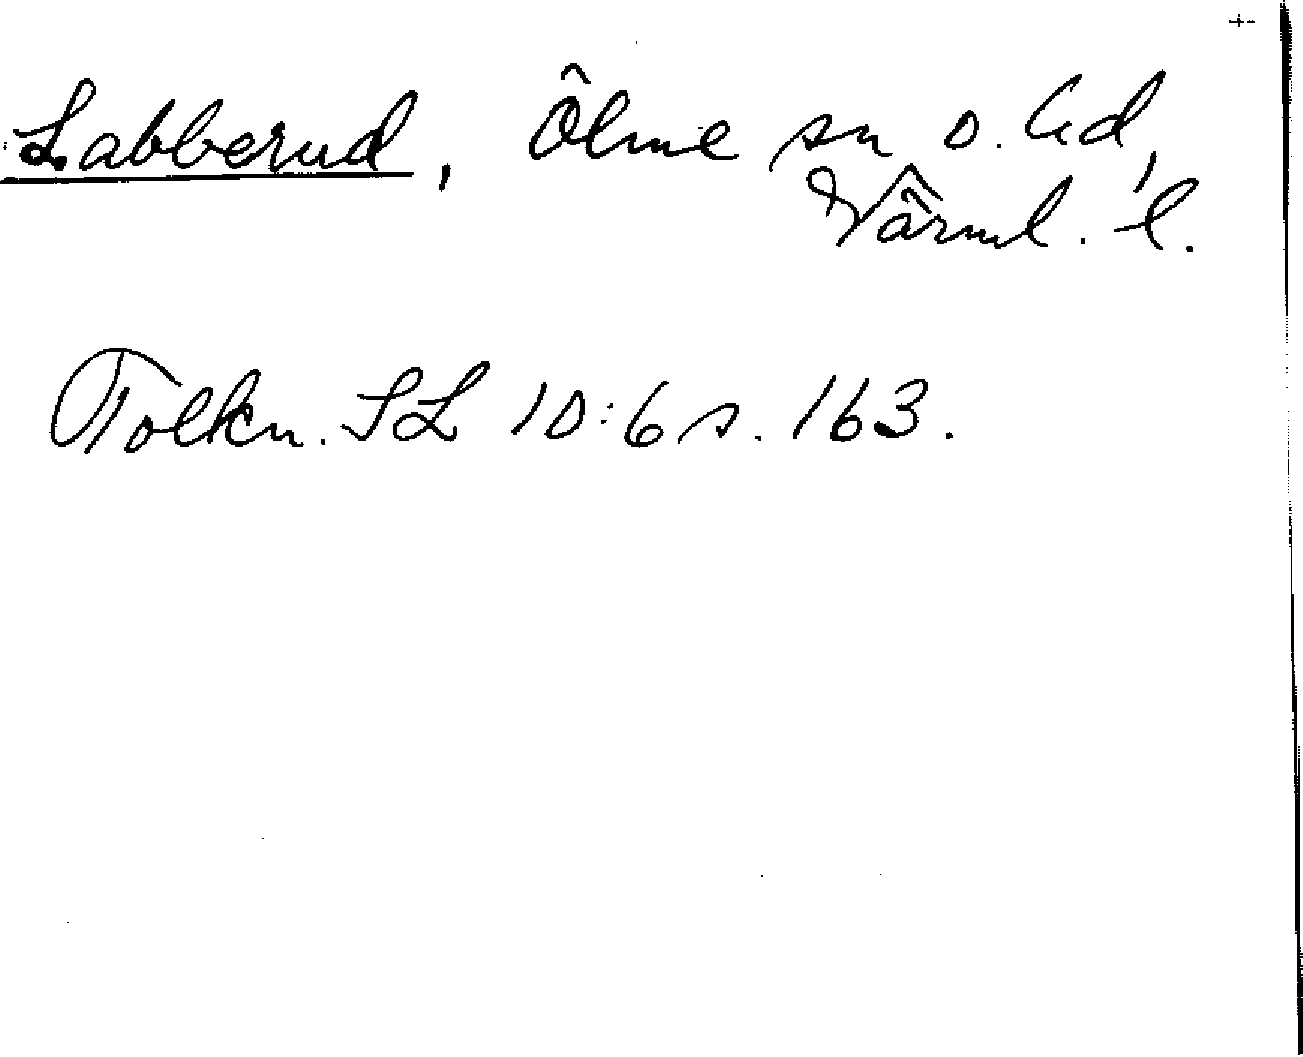 Labberud, Ölme sn o. hd,
Värml. l.
Tolkn. SL 10:6 s. 163.